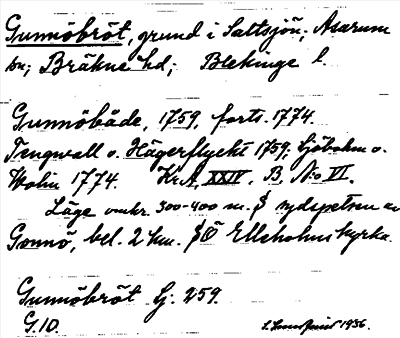 Gunnöbröt, grund i Saltsjön; Asarum
sn; Bräkne hd; Blekinge l.
Gunnöbåde, 1759. forts. 1774.
Tengwall o. Hägerflycht 1759; Sjöbohm o.
Wohin 1774. Kr.A. XXIV. B. N:o VI.
Läge omkr. 300-400 m. S sydspetsen av
Gonnö, bel. 2 km. SÖ Elleholms kyrka.
Gunnöbröt Sj. 259.
G.10. 1936.